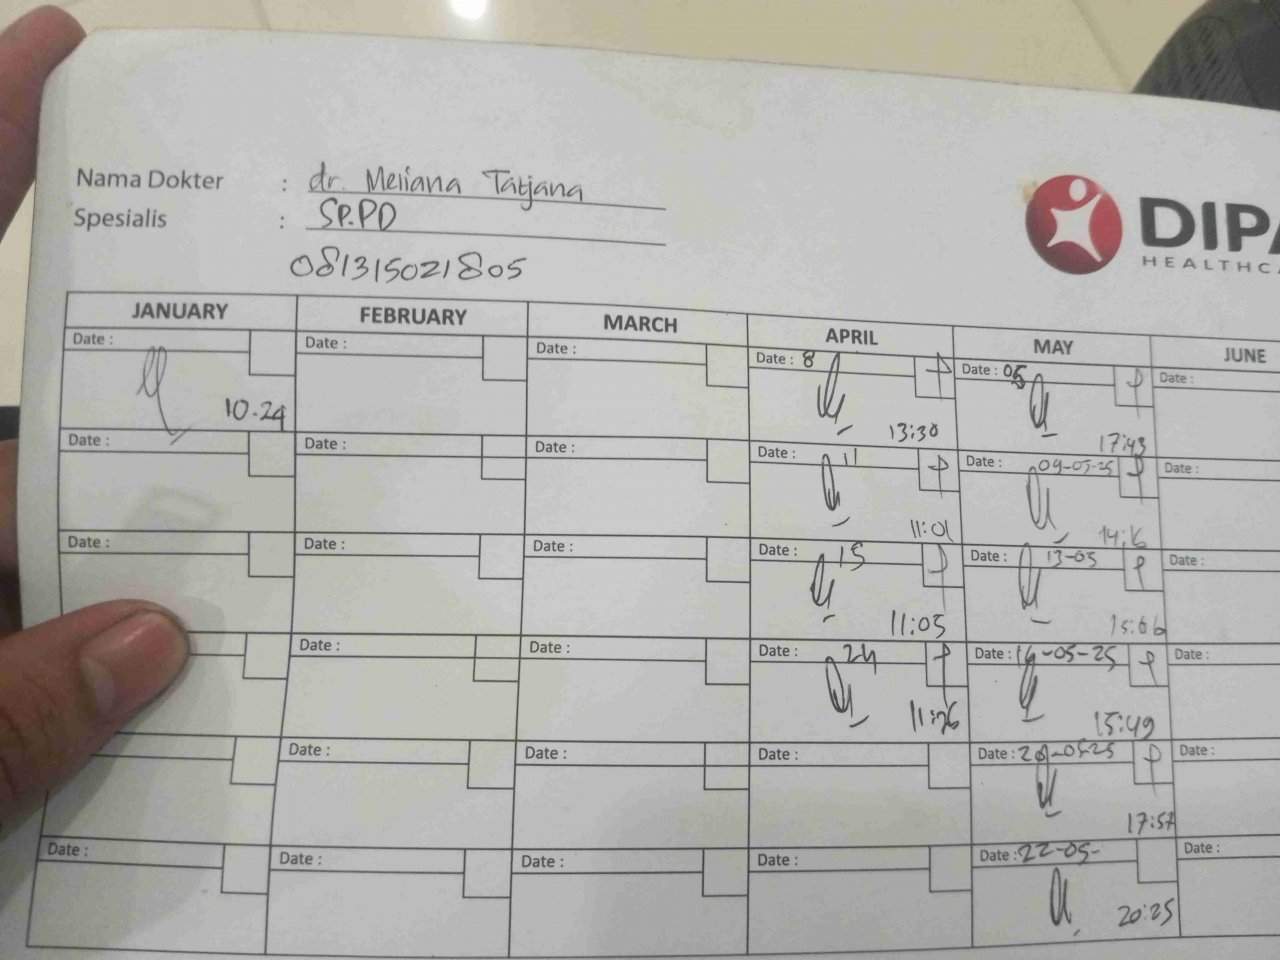 Nama Dokter : dr. Meliana Tatjana
Spesialis : SP.PD
081315021805
DIPA
HEALTHCA
JANUARY FEBRUARY MARCH APRIL MAY JUNE
Date : Date : Date : Date : 8 Date : 05 Date :
10.24 13:30 17:43
Date : Date : Date : Date : 11 Date : 09-05-25 Date :
11:01 14:16
Date : Date : Date : Date : 15 Date : 13-05 Date :
11:05 15:06
Date : Date : Date : 24 Date : 14-05-25 Date :
11:26 15:49
Date : Date : Date : Date : 20-05-25 Date :
17:57
Date : Date : Date : Date : Date : 22-05- Date :
20:25